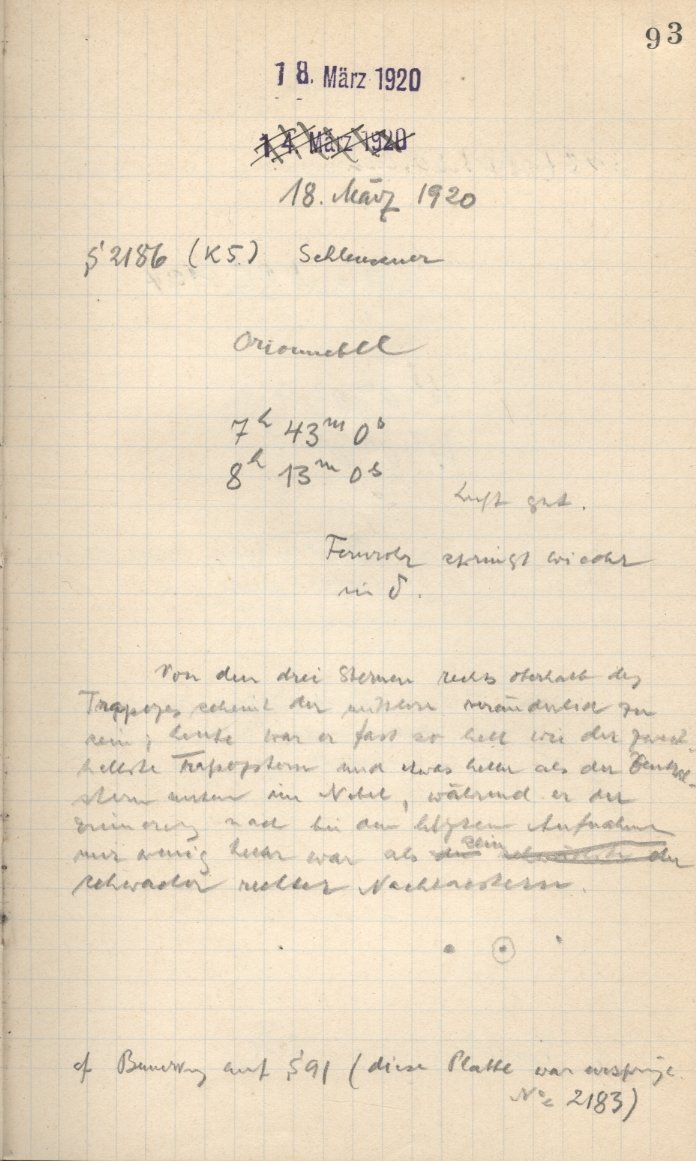 93
18. März 1920
14. März 1920
18. März 1920
§ 2186 (K5.) Schleussner
Orionnebel
7h 43m 0s
8h 13m 0s
Luft gut.
Fernrohr springt wieder
in δ.
Von den drei Sternen rechts oberhalb des
Trapezes scheint der mittlere veränderlich zu
sein; heute war er fast so hell wie der zweit-
hellste Trapezstern und etwas heller als der Central-
stern unten im Nebel, während er der
Erinnerung nach bei der letzten Aufnahme
nur wenig heller war als sein der
schwacher rechter Nachbarstern.
cf Bemerkung auf § 91 (diese Platte war
No 2183)